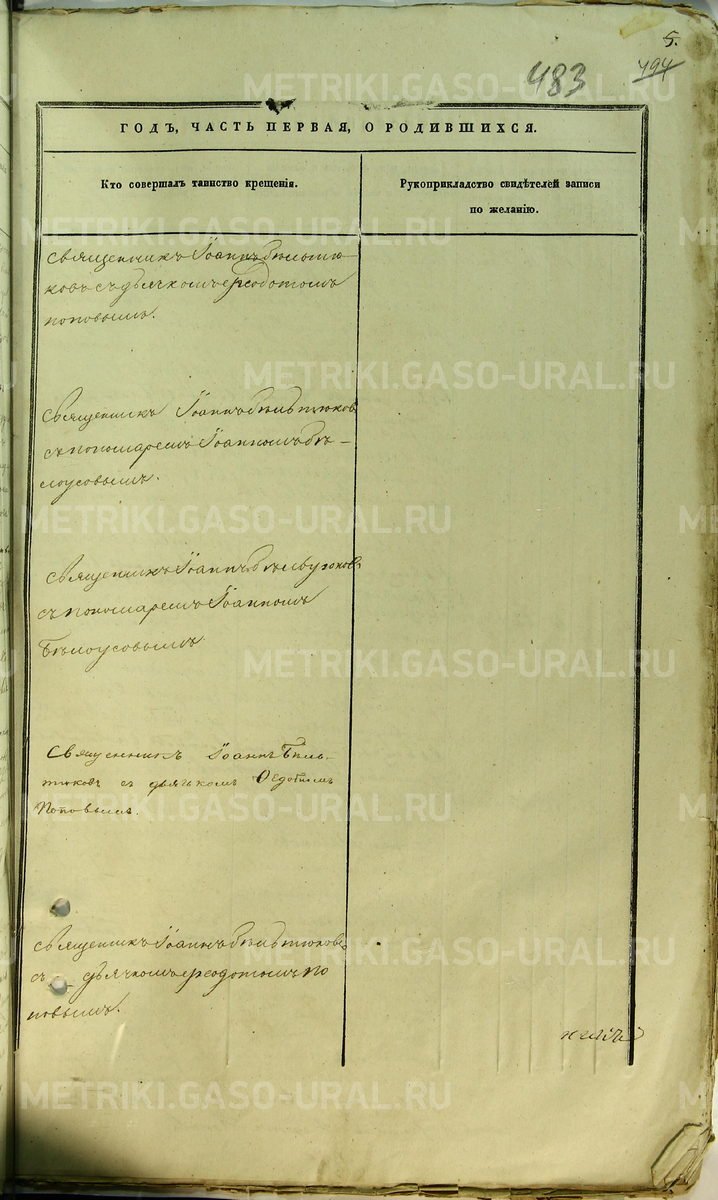 5.
483 494
ГОДЪ, ЧАСТЬ ПЕРВАЯ, О РОДИВШИХСЯ.
Кто совершалъ таинство крещенія.
Рукоприкладство свидѣтелей записи
по желанію.
Священникъ Іоаннъ Бѣльтю-
ковъ съ дьячкомъ Ѳеодотомъ
Поповымъ.
Священникъ Іоаннъ Бѣльтюковъ
съ пономаремъ Іоанномъ Бѣ-
лоусовымъ.
Священникъ Іоаннъ Бѣльтюковъ
съ пономаремъ Іоанномъ
Бѣлоусовымъ
Священникъ Іоаннъ Бѣль-
тюковъ съ дьячкомъ Ѳедотомъ
Поповымъ.
Священникъ Іоаннъ Бѣльтюковъ
съ дьячкомъ Ѳеодотомъ По
повымъ.
METRIKI.GASO-URAL.RU